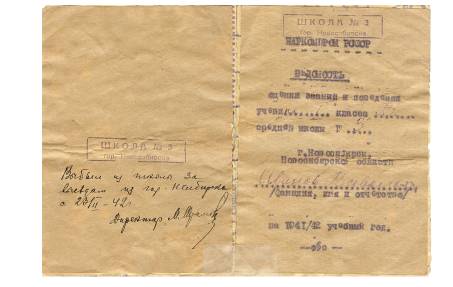 ШКОЛА № 3
гор. Новосибирска
Выбыл из школы за
выездом из гор. Н-сибирска
с 28/II - 42 г.
Директор М.
ШКОЛА № 3
гор. Новосибирска
НАРКОМПРОС РСФСР
ВЕДОМОСТЬ
оценки знаний и поведения
класса
средней школы №
г. Новосибирск,
Новосибирской области
/фамилия, имя и отчество/
на 1941/42 учебный год.